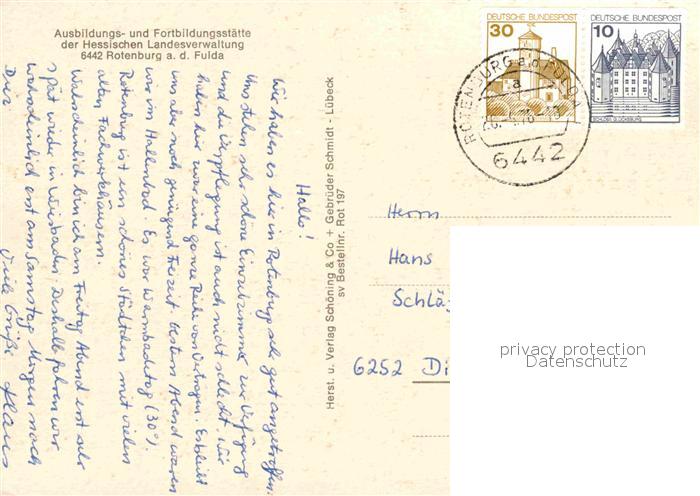 Ausbildungs- und Fortbildungsstätte
der Hessischen Landesverwaltung
6442 Rotenburg a. d. Fulda
Hallo!
Wir haben es hier in Rotenburg sehr gut angetroffen.
Uns stehen sehr schöne Einzelzimmer zur Verfügung
und die Verpflegung ist auch nicht schlecht. Wir
haben hier zwar eine ganze Reihe von Vorträgen. Es bleibt
uns aber noch genügend Freizeit. Gestern Abend waren
wir im Hallenbad. Es war Warmbadetag (30°).
Rotenburg ist ein schönes Städtchen mit vielen
alten Fachwerkhäusern.
Wahrscheinlich bin ich am Freitag Abend erst sehr
spät wieder in Wiesbaden. Deshalb fahren wir
wahrscheinlich erst am Samstag Morgen nach
Diez.
Viele Grüße Klaus
Herst. u. Verlag Schöning & Co + Gebrüder Schmidt - Lübeck
sv Bestellnr. Rot 197
DEUTSCHE BUNDESPOST
30
DEUTSCHE BUNDESPOST
10
SCHLOSS GLÜCKSBURG
ROTENBURG a.d. FULDA
a
6442
Herrn
Hans
Schlä
6252 Di
privacy protection
Datenschutz